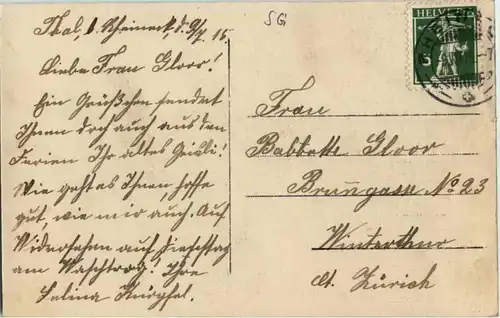 Thal, b. Rheineck d. 9/7. 15.
SG
Liebe Frau Gloor!
Ein Grüsschen sendet
Ihnen doch auch aus den
Ferien Ihr altes
Wie geht es Ihnen, hoffe
gut, wie mir auch. Auf
Wiedersehen auf Dienstag
am Waschtrog. Ihre
Selina
HELVETIA
5
Frau
Babbette Gloor
Brunngasse No 23
Winterthur
Ct. Zürich